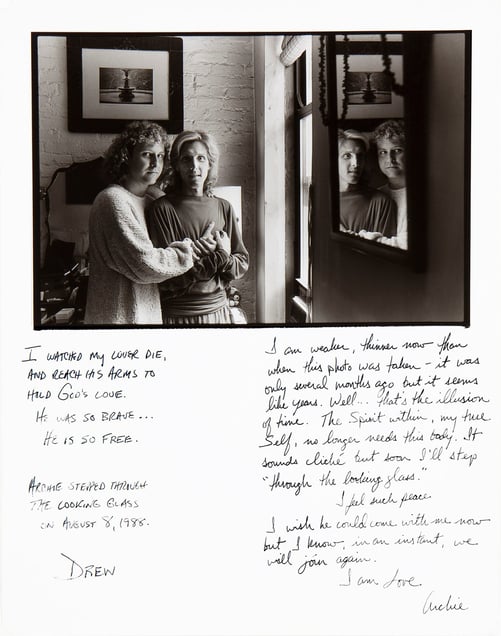 I WATCHED MY LOVER DIE,
AND REACH HIS ARMS TO
HOLD GOD'S LOVE.
HE WAS SO BRAVE...
HE IS SO FREE.
ARCHIE STEPPED THROUGH
THE LOOKING GLASS
ON AUGUST 8, 1988.
DREW
I am weaker, thinner now than
when this photo was taken - it was
only several months ago but it seems
like years. Well... that's the illusion
of time. The Spirit within, my true
Self, no longer needs this body. It
sounds cliché but soon I'll step
"through the looking glass."
I feel such peace
I wish he could come with me now
but I know, in an instant, we
will join again.
I am Love
Archie